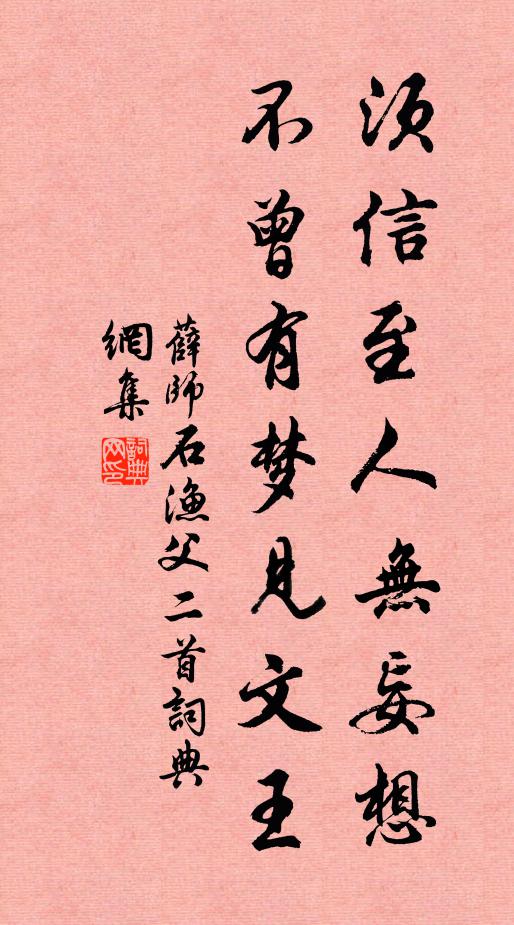 須信至人無妄想
不曾有梦見文王
薛師石漁父二首詞典
網集
詞典網印